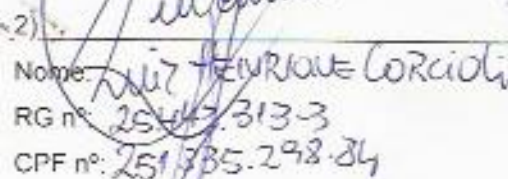 2)
Nome: Luiz HENRIQUE CORCIOLI
RG nº: 25.447.313-3
CPF nº: 251.335.298-84